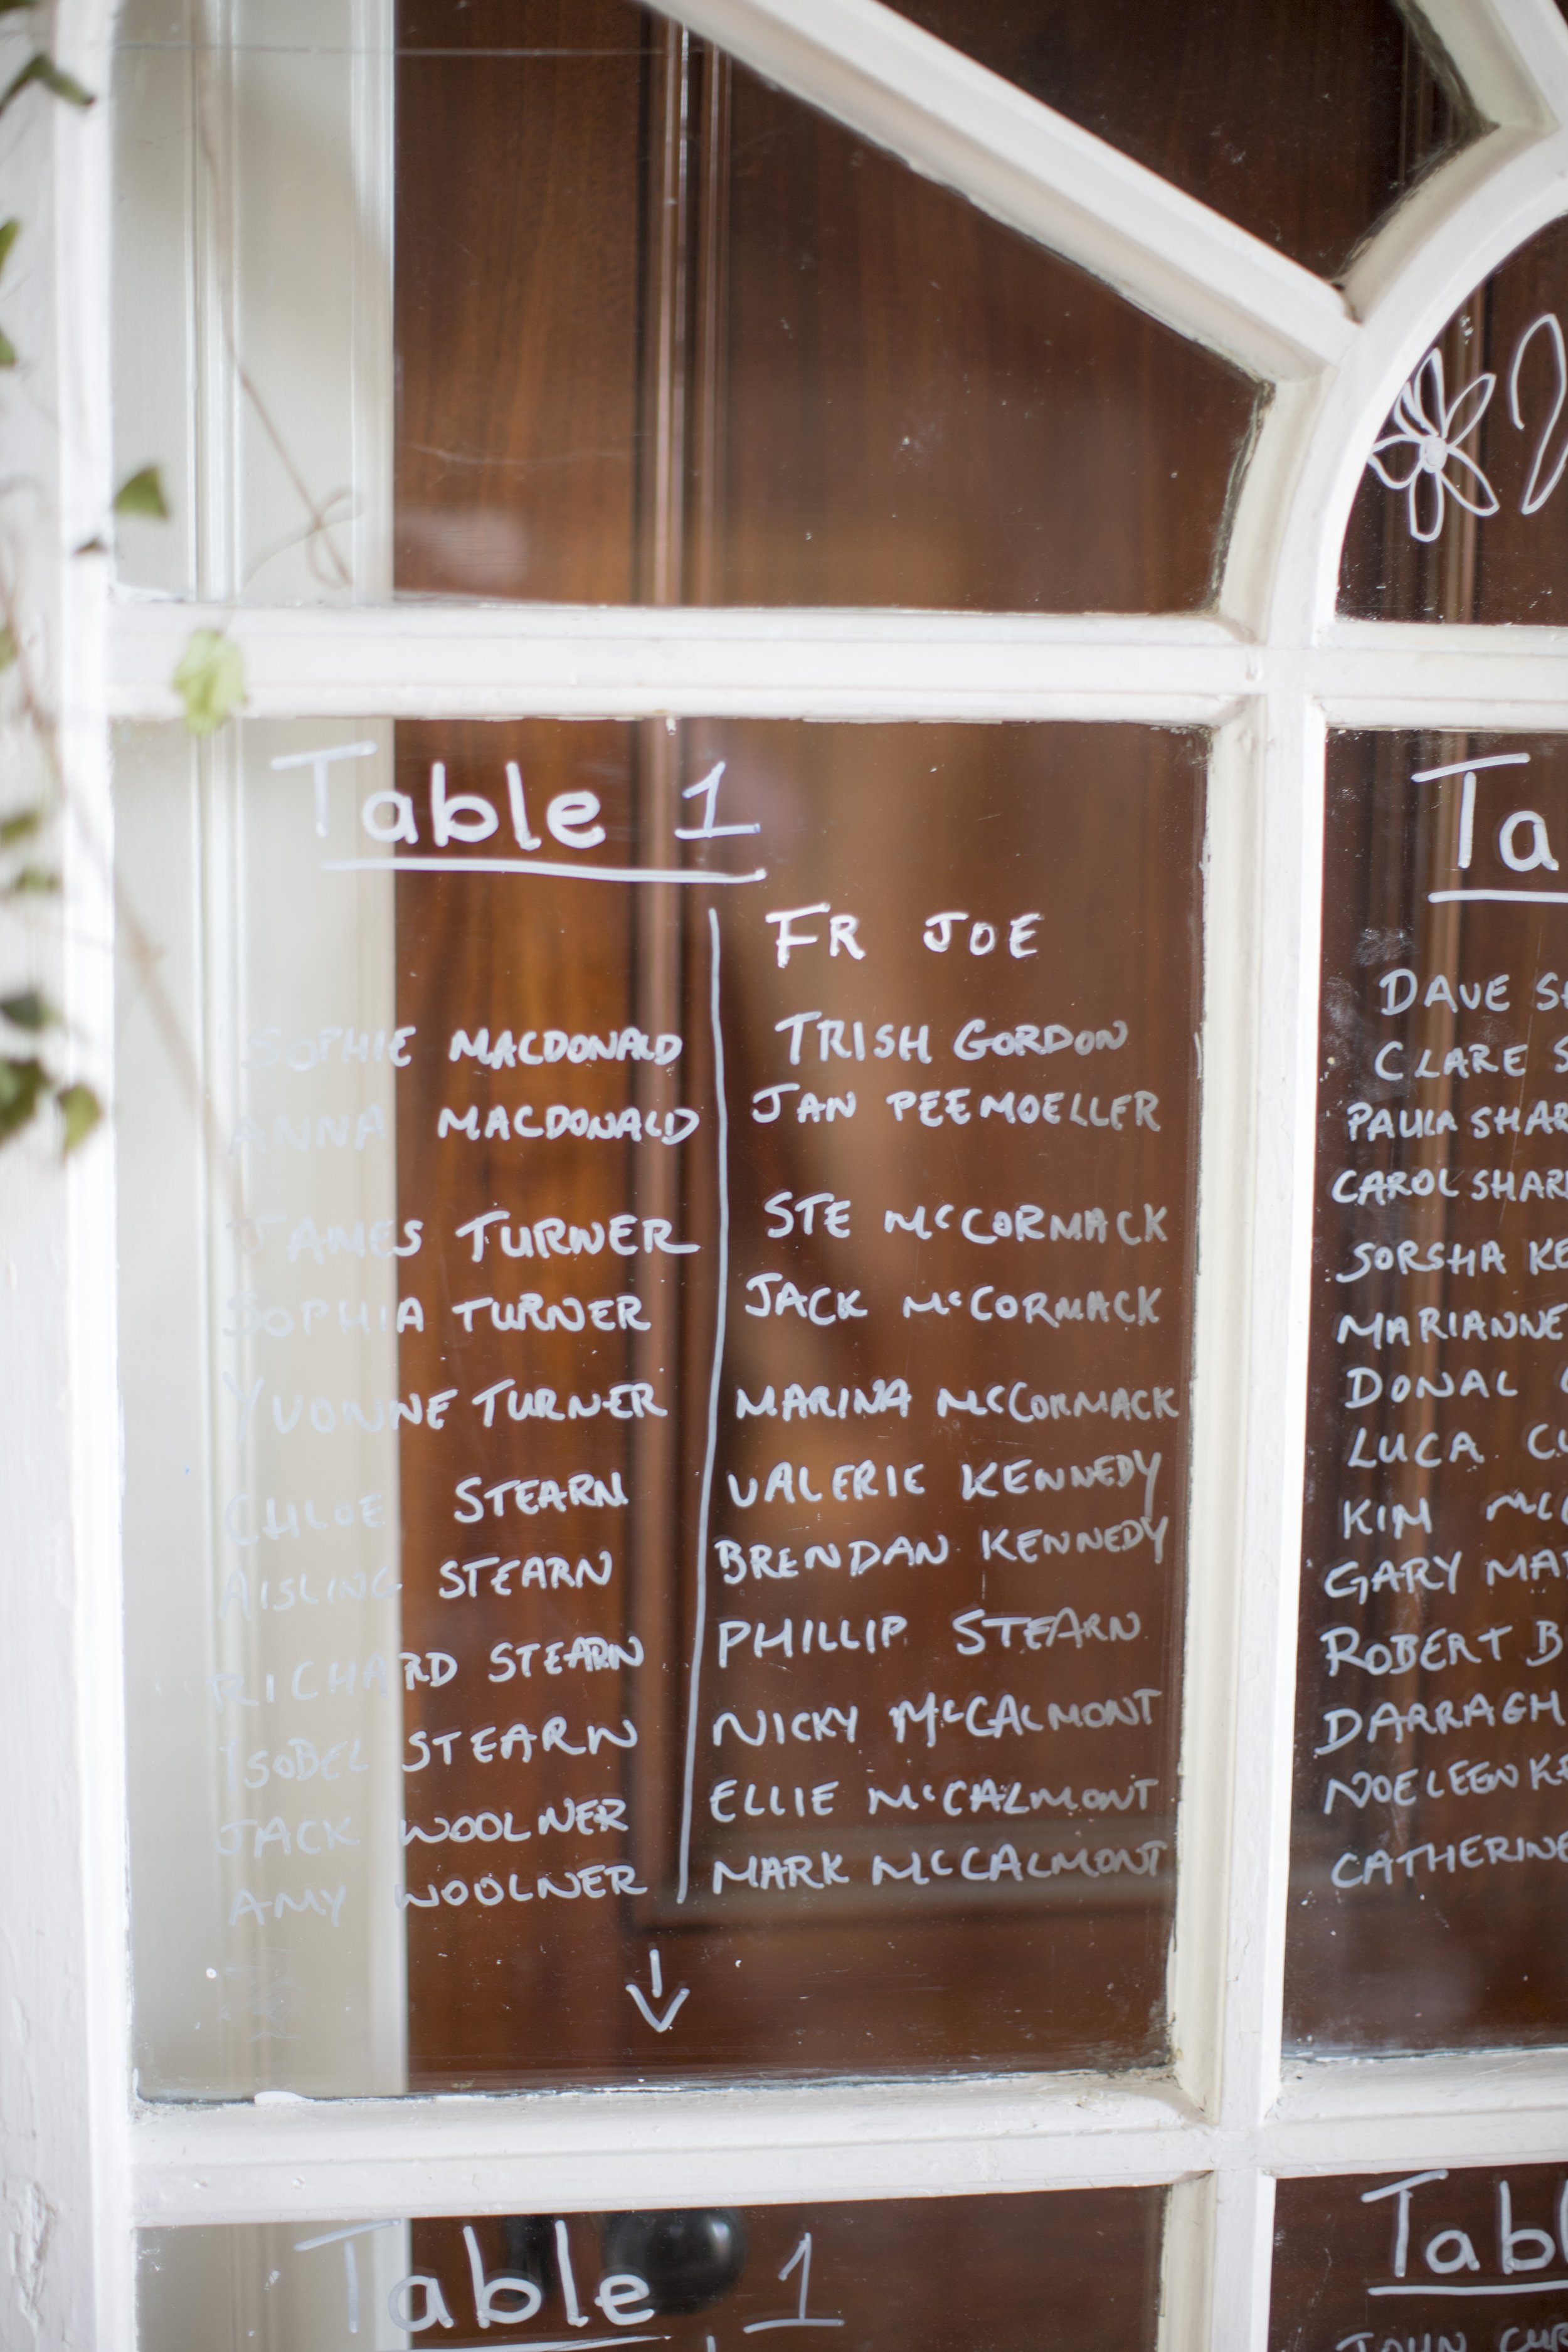 Table 1
SOPHIE MACDONALD
ANNA MACDONALD
JAMES TURNER
SOPHIA TURNER
YVONNE TURNER
CHLOE STEARN
AISLING STEARN
RICHARD STEARN
ISOBEL STEARN
JACK WOOLNER
AMY WOOLNER
FR JOE
TRISH GORDON
JAN PEEMOELLER
STE McCORMACK
JACK McCORMACK
MARINA McCORMACK
VALERIE KENNEDY
BRENDAN KENNEDY
PHILLIP STEARN
NICKY McCALMONT
ELLIE McCALMONT
MARK McCALMONT
Ta
DAVE
CLARE S
PAULA SHAR
CAROL SHAR
SORSHA KE
MARIANNE
DONAL
LUCA CU
KIM Mc
GARY MA
ROBERT B
DARRAGH
NOELEEN KE
CATHERINE
Table 1
Tabl
JOHN